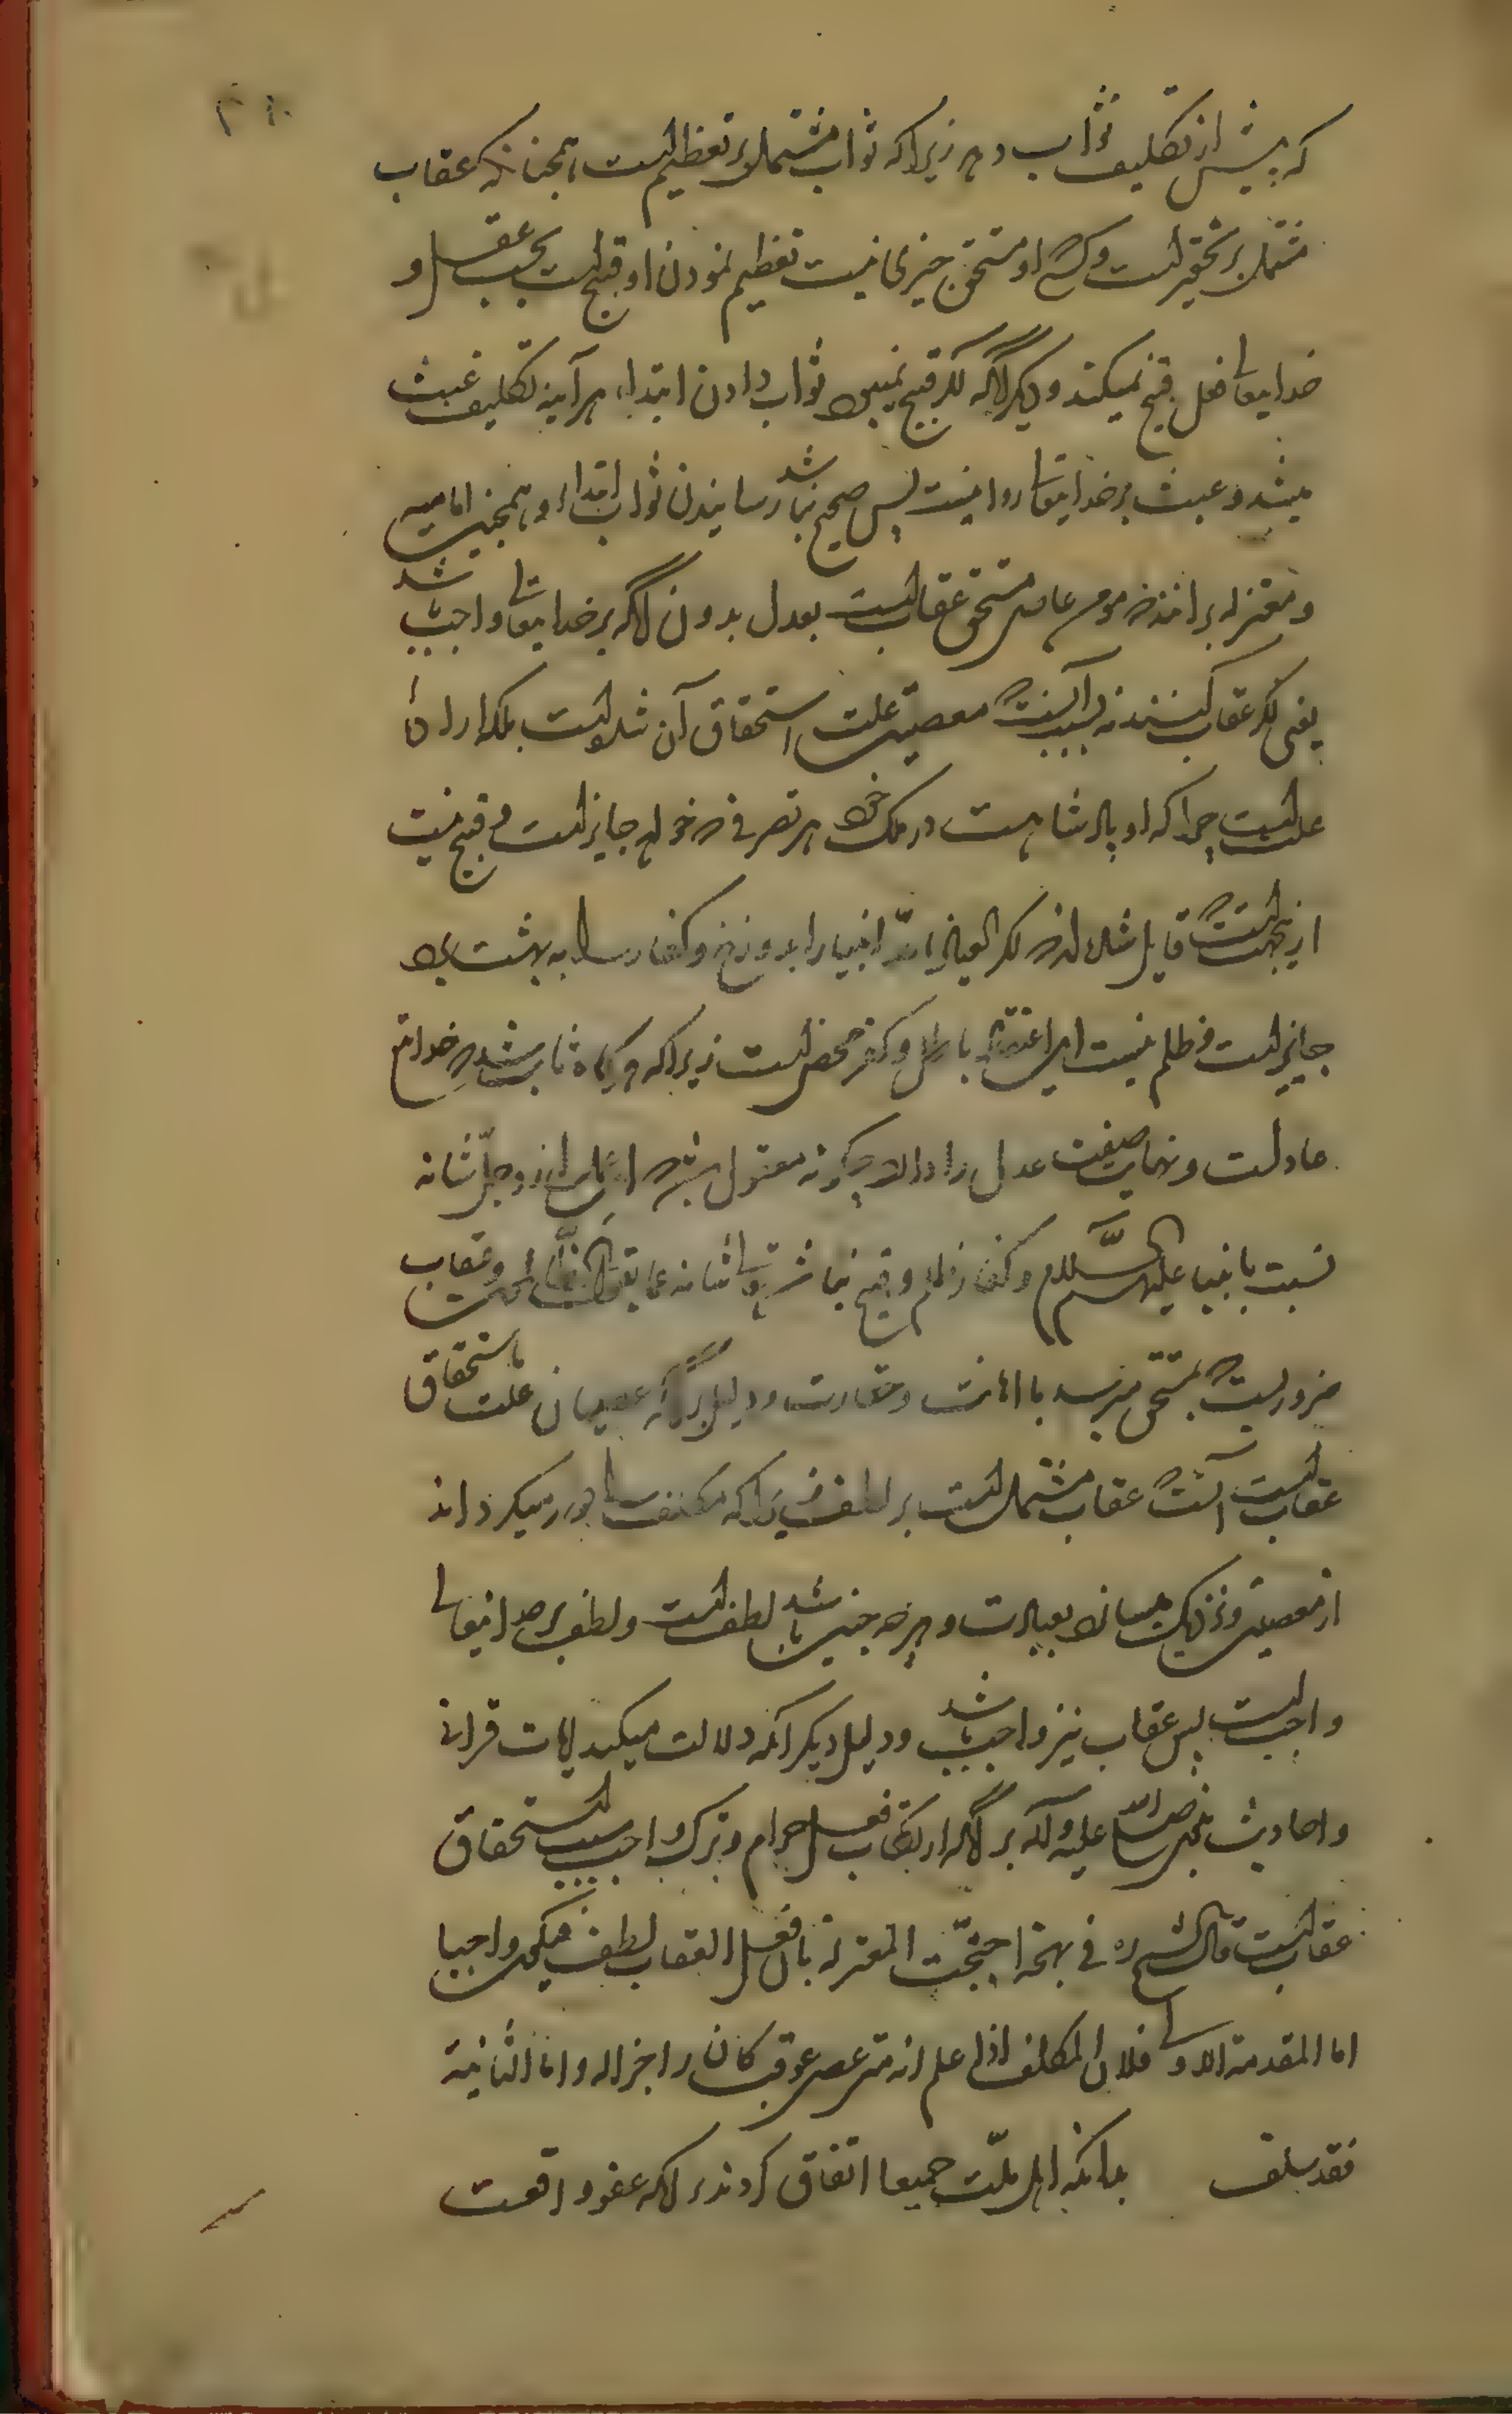 که پیش از تکلیف ثواب دهد زیراکه ثواب مشتمل بر تعظیم است همچنانکه عقاب
مشتمل بر تحقیر است و کسی که او مستحق چیزی نیست تعظیم نمودن او قبیح است بحسب عقل و
خدایتعالی فعل قبیح نمیکند و دیگر آنکه اگر قبیح نمیبود ثواب دادن ابتداء هر آینه تکلیف عبث
میشد و عبث بر خدایتعالی روا نیست پس صحیح نباشد رسانیدن ثواب ابتداء و همچنین امامیه
و معتزله برانند که مردم عاصی مستحق عقابست بعدل بدون آنکه بر خدایتعالی واجب باشد
یعنی اگر عقاب کنند نه بسبب آنست که معصیت علت استحقاق آن شده است بلکه اراده
علتست چرا که او پادشاهست در ملک خود هر تصرفی که خواهد جایز است و قبیح نیست
ازینجهتست که قایل شده‌اند که اگر العیاذ بالله انبیا را بدوزخ و کفار را به بهشت برد
جایز است و ظلم نیست این اعتقاد باطل و کفر محض است زیراکه هرگاه ثابت شد که خدایتعالی
عادلست و نهایت صفت عدل را دارد چگونه معقول باشد که این عمل از او جل شانه
نسبت بانبیا علیهم السلام و کفار ظلم و قبیح نباشد تعالی شانه عما یقول الظالمون و عقاب
ضروریست که بمستحق میرسد با اهانت و حقارت و دلیل بر آنکه عصیان علت استحقاق
عقابست آنست که عقاب مشتمل است بر لطف زیراکه مکلف را دور میگرداند
از معصیت و نزدیک میسازد بعبادت و هرچه چنین باشد لطف است و لطف بر خدایتعالی
واجبست پس عقاب نیز واجب باشد و دلیل دیگر آنکه دلالت میکند آیات قرآنی
و احادیث پیغمبر صلی الله علیه و آله بر آنکه ارتکاب فعل حرام و ترک واجب سبب استحقاق
عقابست قال الشیخ ره فی نهجه احتجت المعتزلة بان فعل العقاب لطف فیکون واجبا
اما المقدمة الاولی فلان المکلف اذا علم انه متی عصی عوقب کان زاجرا له و اما الثانیة
فقد سلف بدانکه اهل ملت جمیعا اتفاق کردند بر آنکه عفو واقعست